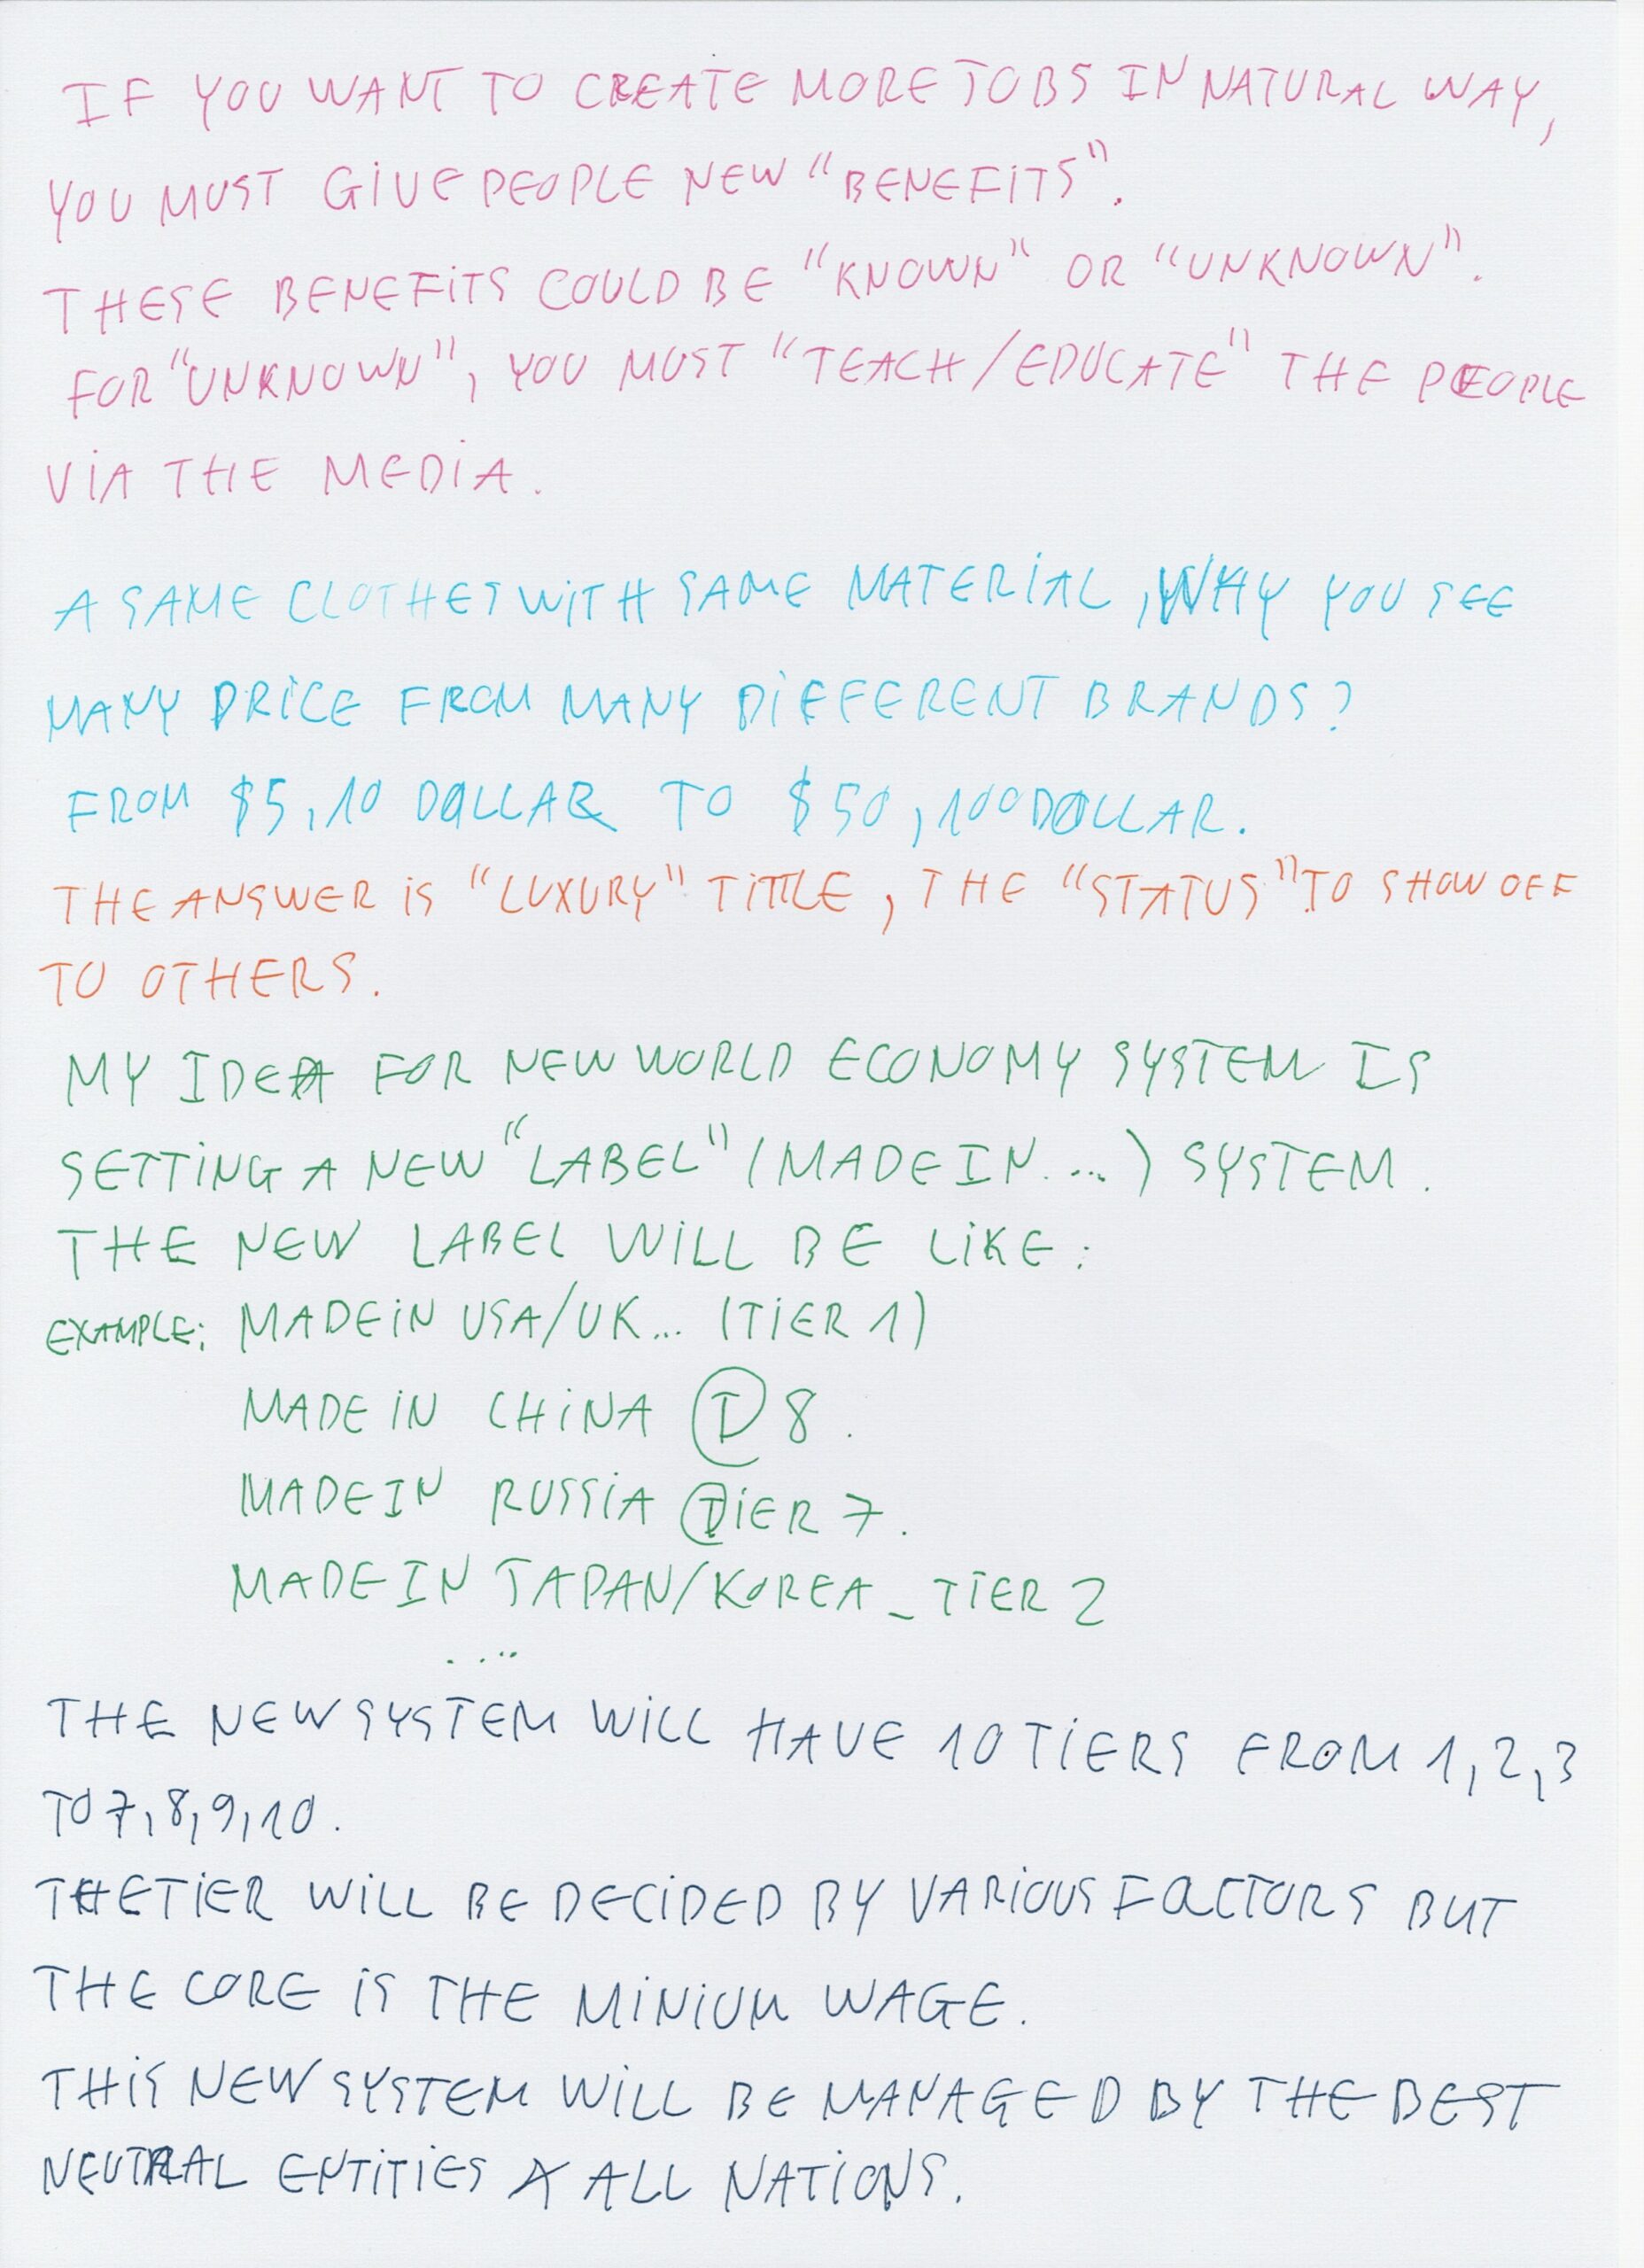 IF YOU WANT TO CREATE MORE JOBS IN NATURAL WAY,
YOU MUST GIVE PEOPLE NEW "BENEFITS".
THESE BENEFITS COULD BE "KNOWN" OR "UNKNOWN".
FOR "UNKNOWN", YOU MUST "TEACH/EDUCATE" THE PEOPLE
VIA THE MEDIA.
A SAME CLOTHES WITH SAME MATERIAL, WHY YOU SEE
MANY PRICE FROM MANY DIFFERENT BRANDS?
FROM $5,10 DOLLAR TO $50,100 DOLLAR.
THE ANSWER IS "LUXURY" TITTLE, THE "STATUS" TO SHOW OFF
TO OTHERS.
MY IDEA FOR NEW WORLD ECONOMY SYSTEM IS
SETTING A NEW "LABEL" (MADE IN ...) SYSTEM.
THE NEW LABEL WILL BE LIKE:
EXAMPLE: MADE IN USA/UK... (TIER 1)
MADE IN CHINA Ⓣ 8.
MADE IN RUSSIA ⓉIER 7.
MADE IN JAPAN/KOREA _ TIER 2
...
THE NEW SYSTEM WILL HAVE 10 TIERS FROM 1,2,3
TO 7,8,9,10.
THE TIER WILL BE DECIDED BY VARIOUS FACTORS BUT
THE CORE IS THE MINIUM WAGE.
THIS NEW SYSTEM WILL BE MANAGED BY THE BEST
NEUTRAL ENTITIES & ALL NATIONS.